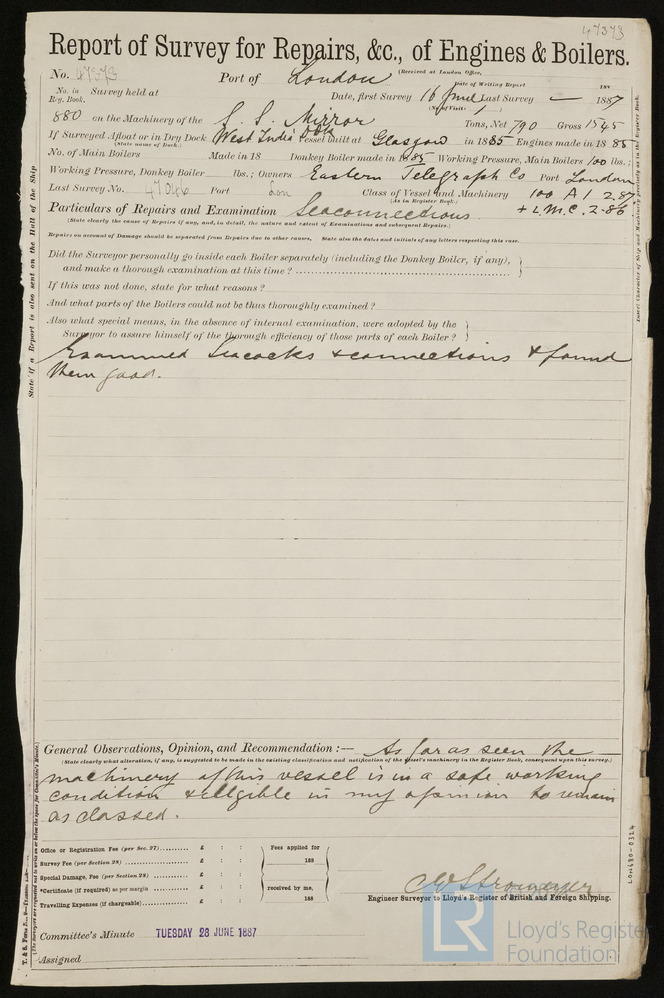 47373
Report of Survey for Repairs, &c., of Engines & Boilers.
No. 47373 Port of London (Received at London Office,
Date of Writing Report 188
No. in Reg. Book. Survey held at Date, first Survey 16 June Last Survey — 1887
(No. of Visits 1)
880 on the Machinery of the S. S. Mirror Tons, Net 790 Gross 1545
If Surveyed Afloat or in Dry Dock West India Dock Vessel built at Glasgow in 1885 Engines made in 1885
(State name of Dock.)
No. of Main Boilers Made in 18 Donkey Boiler made in 1885 Working Pressure, Main Boilers 100 lbs.;
Working Pressure, Donkey Boiler lbs.; Owners Eastern Telegraph Co Port London
Last Survey No. 47046 Port Lon Class of Vessel and Machinery 100 A 1 2.87
(As in Register Book.) + L.M.C. 2.86
Particulars of Repairs and Examination Seaconnections
(State clearly the cause of Repairs if any, and, in detail, the nature and extent of Examinations and subsequent Repairs.)
Repairs on account of Damage should be separated from Repairs due to other causes. State also the dates and initials of any letters respecting this case.
Did the Surveyor personally go inside each Boiler separately (including the Donkey Boiler, if any),
and make a thorough examination at this time?
If this was not done, state for what reasons?
And what parts of the Boilers could not be thus thoroughly examined?
Also what special means, in the absence of internal examination, were adopted by the
Surveyor to assure himself of the thorough efficiency of those parts of each Boiler?
Examined Seacocks & connections & found
them good.
State if a Report is also sent on the Hull of the Ship
Insert Character of Ship and Machinery precisely as in the Register Book.
General Observations, Opinion, and Recommendation :— As far as seen the
(State clearly what alteration, if any, is suggested to be made in the existing classification and notification of the vessel's machinery in the Register Book, consequent upon this survey.)
machinery of this vessel is in a safe working
condition & eligible in my opinion to remain
as classed.
Office or Registration Fee (per Sec. 27) £ : : Fees applied for
Survey Fee (per Section 28) £ : : 188
Special Damage, Fee (per Section 28) £ : :
*Certificate (if required) as per margin £ : : received by me,
Travelling Expenses (if chargeable) £ : : 188
CE Stromeyer
Engineer Surveyor to Lloyd's Register of British and Foreign Shipping.
Committee's Minute TUESDAY 28 JUNE 1887
Assigned
LON680-0324
LR Lloyd's Register
Foundation